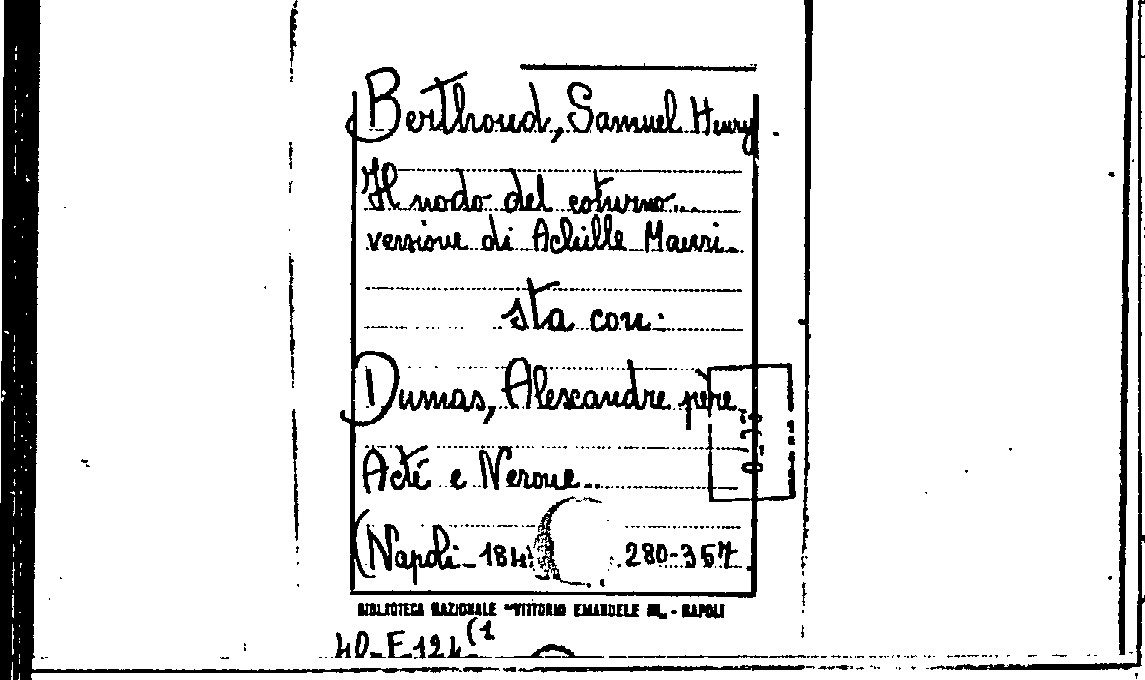 Berthoud, Samuel Henry
Il nodo del coturno...
versione di Achille Mauri.
sta con:
Dumas, Alexandre père
Acté e Nerone..
(Napoli_184 280-357
BIBLIOTECA NAZIONALE "VITTORIO EMANUELE III„ - NAPOLI
40-F-124(1